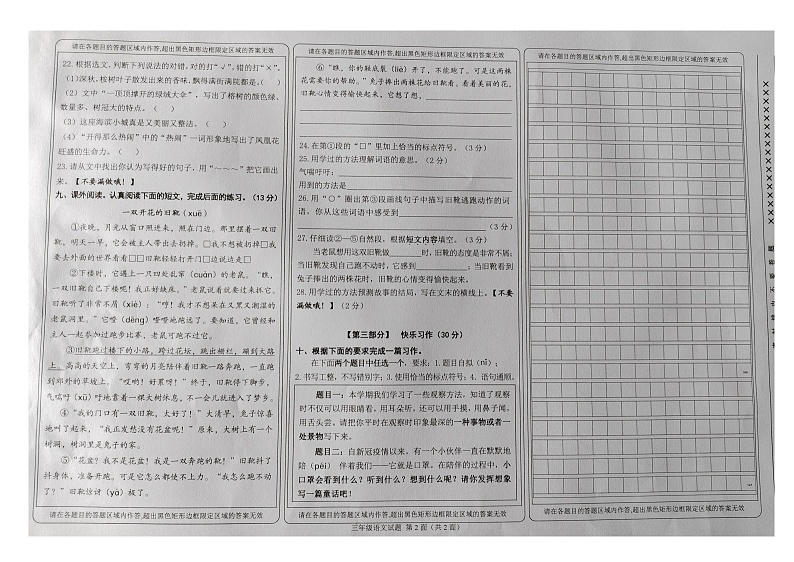 请在各题目的答题区域内作答,超出黑色矩形边框限定区域的答案无效
22.根据选文,判断下列说法的对错,对的打“√”,错的打“×”。
(1)深秋,桉树叶子散发出来的香味,飘得满街满院都是。( )
(2)文中“一顶顶撑开的绿绒大伞”,写出了榕树的颜色绿、
数量多、树冠大的特点。( )
(3)这座海滨小城真是又美丽又整洁。( )
(4)“开得那么热闹”中的“热闹”一词形象地写出了凤凰花
旺盛的生命力。( )
23.请从文中找出你认为写得好的句子,用“～～～”把它画出
来。【不要漏做哦!】
九、课外阅读。认真阅读下面的短文,完成后面的练习。(13分)
一双开花的旧靴(xuē)
①夜晚,月光从窗口照进来,照在门边。那里摆着一双旧
靴,明天一早,它会被主人带出去扔掉。□我不想被扔掉□我
要去外面的世界看看□□旧靴轻轻打开门□边说边走□
②下楼时,它遇上一只四处乱窜(cuàn)的老鼠。“瞧,
一双旧靴自己下楼呢!我正好缺床。”老鼠说着就要过来抓它。
旧靴听了非常不屑(xiè):“哼!我才不想呆在又黑又潮湿的
老鼠洞里。”它噔(dēng)噔噔地跑远了。要知道,它曾经和
主人一起参加过跑步比赛,老鼠可跑不过它。
③旧靴跑过楼下的小路,跨过花坛,跳出栅栏,蹦到大路
上。高高的天空上,弯弯的月亮陪伴着旧靴一路奔跑,一直跑
到郊外的草坡上。“哎哟!好累呀!”终于,旧靴停下脚步,
气喘吁(xū)吁地靠着一棵大树休息,不一会儿就进入了梦乡。
④“我的门口有一双旧靴,太好了!”大清早,兔子惊喜
地叫了起来,“我正发愁没有花盆呢!”原来,大树上有一个
树洞,树洞里是兔子的家。
⑤“花盆?我不是花盆!我是一双奔跑的靴!”旧靴抖了
抖身体,准备开跑。可是它怎么都使不上力。“我怎么跑不动
了?”旧靴惊讶(yà)极了。
请在各题目的答题区域内作答,超出黑色矩形边框限定区域的答案无效
请在各题目的答题区域内作答,超出黑色矩形边框限定区域的答案无效
⑥“瞧,你的鞋底裂(liè)开了,不能跑了。可是这两棵
花需要你的帮助。”兔子捧出两棵花给旧靴看。看着美丽的花,
旧靴心情变得愉快起来,它想了想,
24.在第①段的“□”里加上恰当的标点符号。(3分)
25.用学过的方法理解词语的意思。(2分)
气喘吁吁:
用到的方法是
26.用“○”圈出第③段画线句子中描写旧靴逃跑动作的词
语,你从这些词语中感受到
(3分)
27.仔细读②—⑤自然段,根据短文内容填空。(3分)
当老鼠想用这双旧靴做 时,旧靴的态度是非常不屑;
当旧靴发现自己跑不动时,它感到 ;当旧靴看到
兔子捧出的两株花时,旧靴的心情变得愉快起来。
28.用学过的方法预测故事的结局,写在文末的横线上。【不要
漏做哦!】(2分)
【第三部分】 快乐习作(30分)
十、根据下面的要求完成一篇习作。
在下面两个题目中任选一个,要求:1.题目自拟(nǐ);
2.书写工整,不写错别字;3.使用恰当的标点符号;4.语句通顺。
题目一:本学期我们学习了一些观察方法,知道了观察
时不仅可以用眼睛看,用耳朵听,还可以用手摸,用鼻子闻,
用舌头尝。请把你平时观察时印象最深的一种事物或者一
处景物写下来。
题目二:自新冠疫情以来,有一个小伙伴一直在默默地
陪(péi) 伴着我们——它就是口罩。在陪伴的过程中,小
口罩会看到什么?听到什么?想到什么呢?请你发挥想象
写一篇童话吧!
请在各题目的答题区域内作答,超出黑色矩形边框限定区域的答案无效
三年级语文试题 第2面(共2面)
请在各题目的答题区域内作答,超出黑色矩形边框限定区域的答案无效
请在各题目的答题区域内作答,超出黑色矩形边框限定区域的答案无效